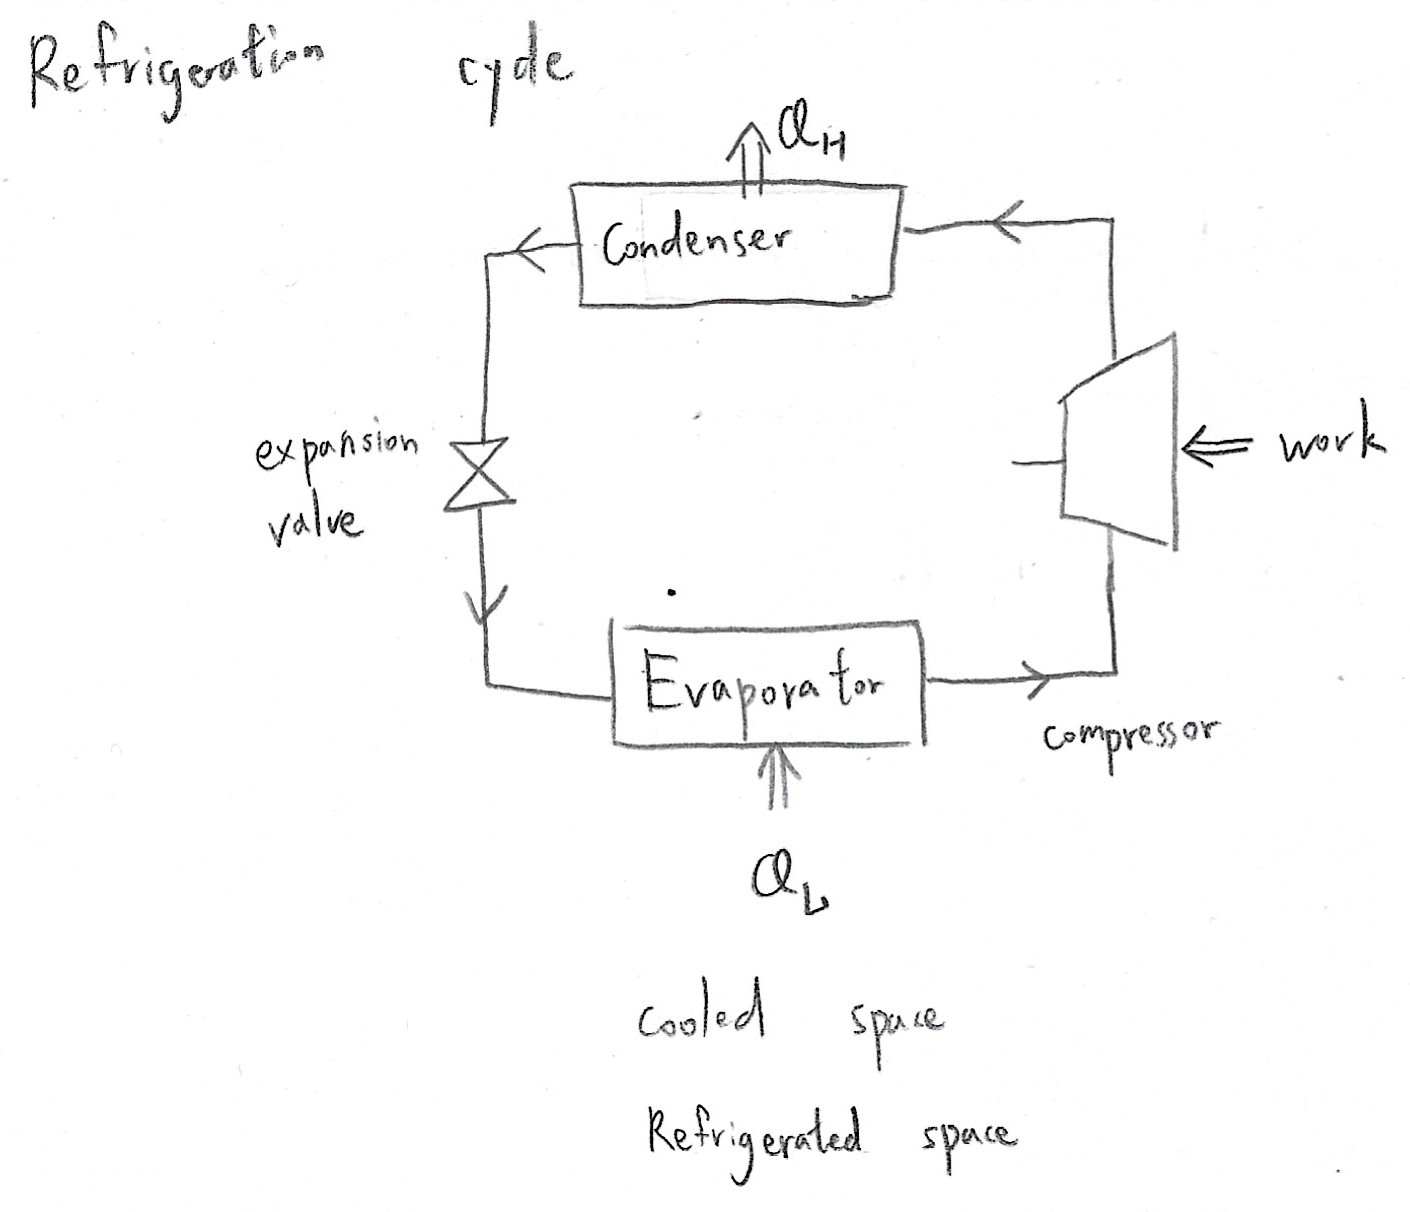 Refrigeration cycle
Q_H
Condenser
expansion
valve
work
Evaporator
compressor
Q_L
cooled space
Refrigerated space